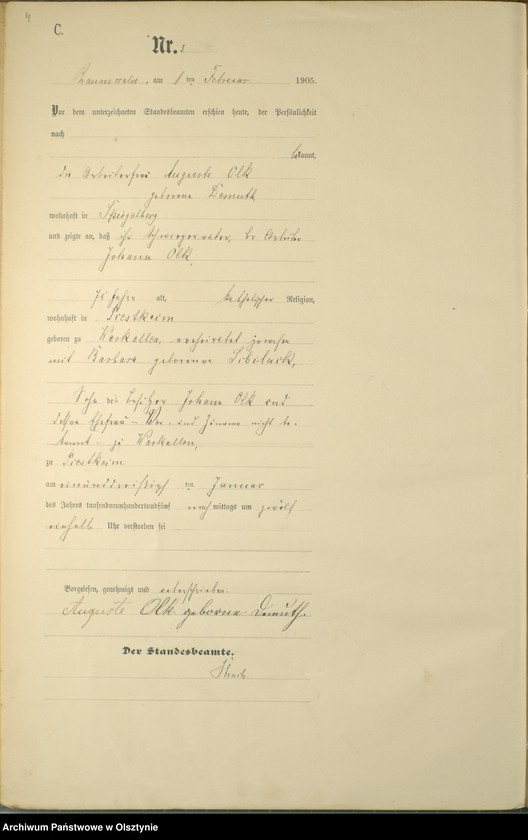 4
C.
Nr. 3
am 1ten Februar 1905.
Vor dem unterzeichneten Standesbeamten erschien heute, der Persönlichkeit
nach
bekannt,
die Arbeiterfrau Auguste Olk
geborene Demuth
wohnhaft in Spiegelberg
und zeigte an, daß ihr Schwiegervater, der Arbeiter
Johann Olk,
75 Jahre alt, katholischer Religion,
wohnhaft in Piestkeim
geboren zu Warkallen, verheiratet gewesen
mit Barbara geborenen
Sohn des Besitzer Johann Olk und
dessen Ehefrau – Vor- und Zuname nicht be-
kannt – zu Warkallen,
zu Piestkeim
am einunddreißigsten Januar
des Jahres tausendneunhundertundfünf nachmittags um zwölf
einhalb Uhr verstorben sei
Vorgelesen, genehmigt und unterschrieben
Auguste Olk geborne Demuth.
Der Standesbeamte.
Archiwum Państwowe w Olsztynie